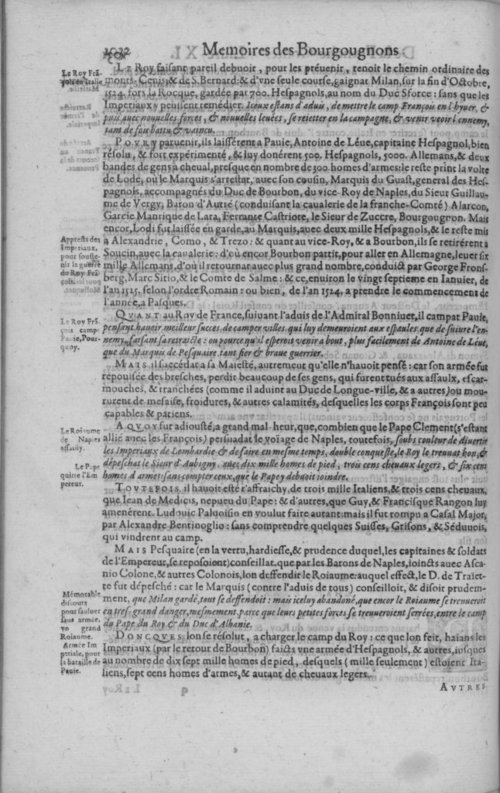 Memoires des Bourgougnons
Le Roy faisant pareil debuoir, pour les préuenir, tenoit le chemin ordinaire des
monts Cenis, & de S. Bernard: & d'vne seule course, gaignat Milan, sur la fin d'Octobre,
1524. fors la Rocque, gardée par 700. Hespagnols, au nom du Duc Sforce: sans que les
Imperiaux y peussent remédier. Iceux estans d'aduis, de mettre le camp François en l'hyuer, &
puis auec nouuelles forces, & nouuelles leuées, se reietter en la campagne, & venir veoir l'ennemy,
tant de soy batu, & vaincu.
Povry paruenir, ils laissêrent a Pauie, Antoine de Léue, capitaine Hespagnol, bien
résolu, & fort expérimenté, & luy donêrent 500. Hespagnols, 5000. Allemans, & deux
bandes de gens a cheual, presque en nombre de 300. homes d'armes: le reste print la volte
de Lode, où le Marquis s'arrestat, auec son cousin, Marquis du Guast, general des Hes-
pagnols, accompagnés du Duc de Bourbon, du vice-Roy de Naples, du Sieur Guillau-
me de Vergy, Baron d'Autré (conduisant la caualerie de la franche-Comté) Alarcon,
Garcie Manrique de Lara, Ferrante Castriote, le Sieur de Zucere, Bourgougnon. Mais
encor, Lodi fut laissée en garde, au Marquis, auec deux mille Hespagnols, & le reste mis
a Alexandrie, Como, & Trezo: & quant au vice-Roy, & a Bourbon, ils se retirérent a
Soucin, auec la caualerie: d'où encor Bourbon partit, pour aller en Allemagne, leuer six
mille Allemans, d'où il retournat auec plus grand nombre, conduict par George Frons-
berg, Marc Sitio, & le Comte de Salme: & ce, enuiron le vingt septieme en Ianuier, de
l'an 1525. selon l'ordre Romain: ou bien, de l'an 1524. a prendre le commencement de
l'année, a Pasques.
Qviant au Roy de France, suiuant l'aduis de l'Admiral Bonniuet, il campat Pauie,
pensant hauoir meilleur succes, de camper villes, qui luy demeuroient aux espaules, que de suiure l'en-
nemy, faisant sa retraicte: ou pource qu'il esperoit venir a bout, plus facilement de Antoine de Léue,
que du Marquis de Pesquaire, tant fier & braue guerrier.
Mais il succédat a sa Maiesté, autrement qu'elle n'hauoit pensé: car son armée fut
repoussée des bresches, perdit beaucoup de ses gens, qui furent tués aux assaulx, escar-
mouches, & tranchées (comme il aduint au Duc de Longue-ville, & a autres) ou mou-
rurent de mesaise, froidures, & autres calamités, desquelles les corps François sont peu
capables & patiens.
A qvoy fut adiousté, a grand mal-heur, que, combien que le Pape Clement (s'estant
allié auec les François) persuadat le voiage de Naples, toutefois, soubs couleur de diuertir
les Imperiaux de Lombardie & de faire en mesme temps, double conqueste, le Roy le trouuat bon, &
dépeschat le Sieur d'Aubigny, auec dix mille homes de pied, trois cens cheuaux legers, & six cens
homes d'armes: sans compter ceux, que le Pape y debuoit ioindre.
Tovtefois, il hauoit esté raffraichy, de trois mille Italiens, & trois cens cheuaux,
que Iean de Medicis, nepueu du Pape: & d'autres, que Guy, & Francisque Rangon luy
amenérent. Ludouic Paluoisin en voulut faire autant: mais il fut rompu a Casal Major,
par Alexandre Bentiuoglio: sans comprendre quelques Suisses, Grisons, & Séduuois,
qui vindrent au camp.
Mais Pesquaire (en la vertu, hardiesse, & prudence duquel, les capitaines & soldats
de l'Empereur, se reposoient) conseillat, que par les Barons de Naples, ioincts auec Asca-
nio Colone, & autres Colonois, lon deffendit le Roiaume: auquel effect, le D. de Traiet-
te fut dépesché: car le Marquis (contre l'aduis de tous) conseilloit, & disoit prudem-
ment, que Milan gardé, tout se deffendoit: mais iceluy abandoné, que encor le Roiaume se trouueroit
en tres-grand danger, mesmement, parce que leurs petites forces se trouueroient serrées, entre le camp
du Pape, du Roy & du Duc d'Albanie.
Doncqves, lon se résolut, a charger le camp du Roy: ce que lon feit, haians les
Imperiaux (par le retour de Bourbon) faicts vne armée d'Hespagnols, & autres, iusques
au nombre de dix sept mille homes de pied, desquels (mille seulement) estoient Ita-
liens, sept cens homes d'armes, & autant de cheuaux legers.
q
Avtres
Le Roy Frã-
çois en Italie
Apprests des
Imperiaux,
pour souste-
nir la guerre
du Roy Frã-
çois.
Le Roy Frã-
çois campe
Pauie, Pour-
quoy.
Le Roiaume
de Naples
assailly.
Le Pape
quitte l'Em-
pereur.
Mémorable
discours
pour sauluer
sans armée,
vn grand
Roiaume.
Armée Im-
périale, pour
la bataille de
Pauie.